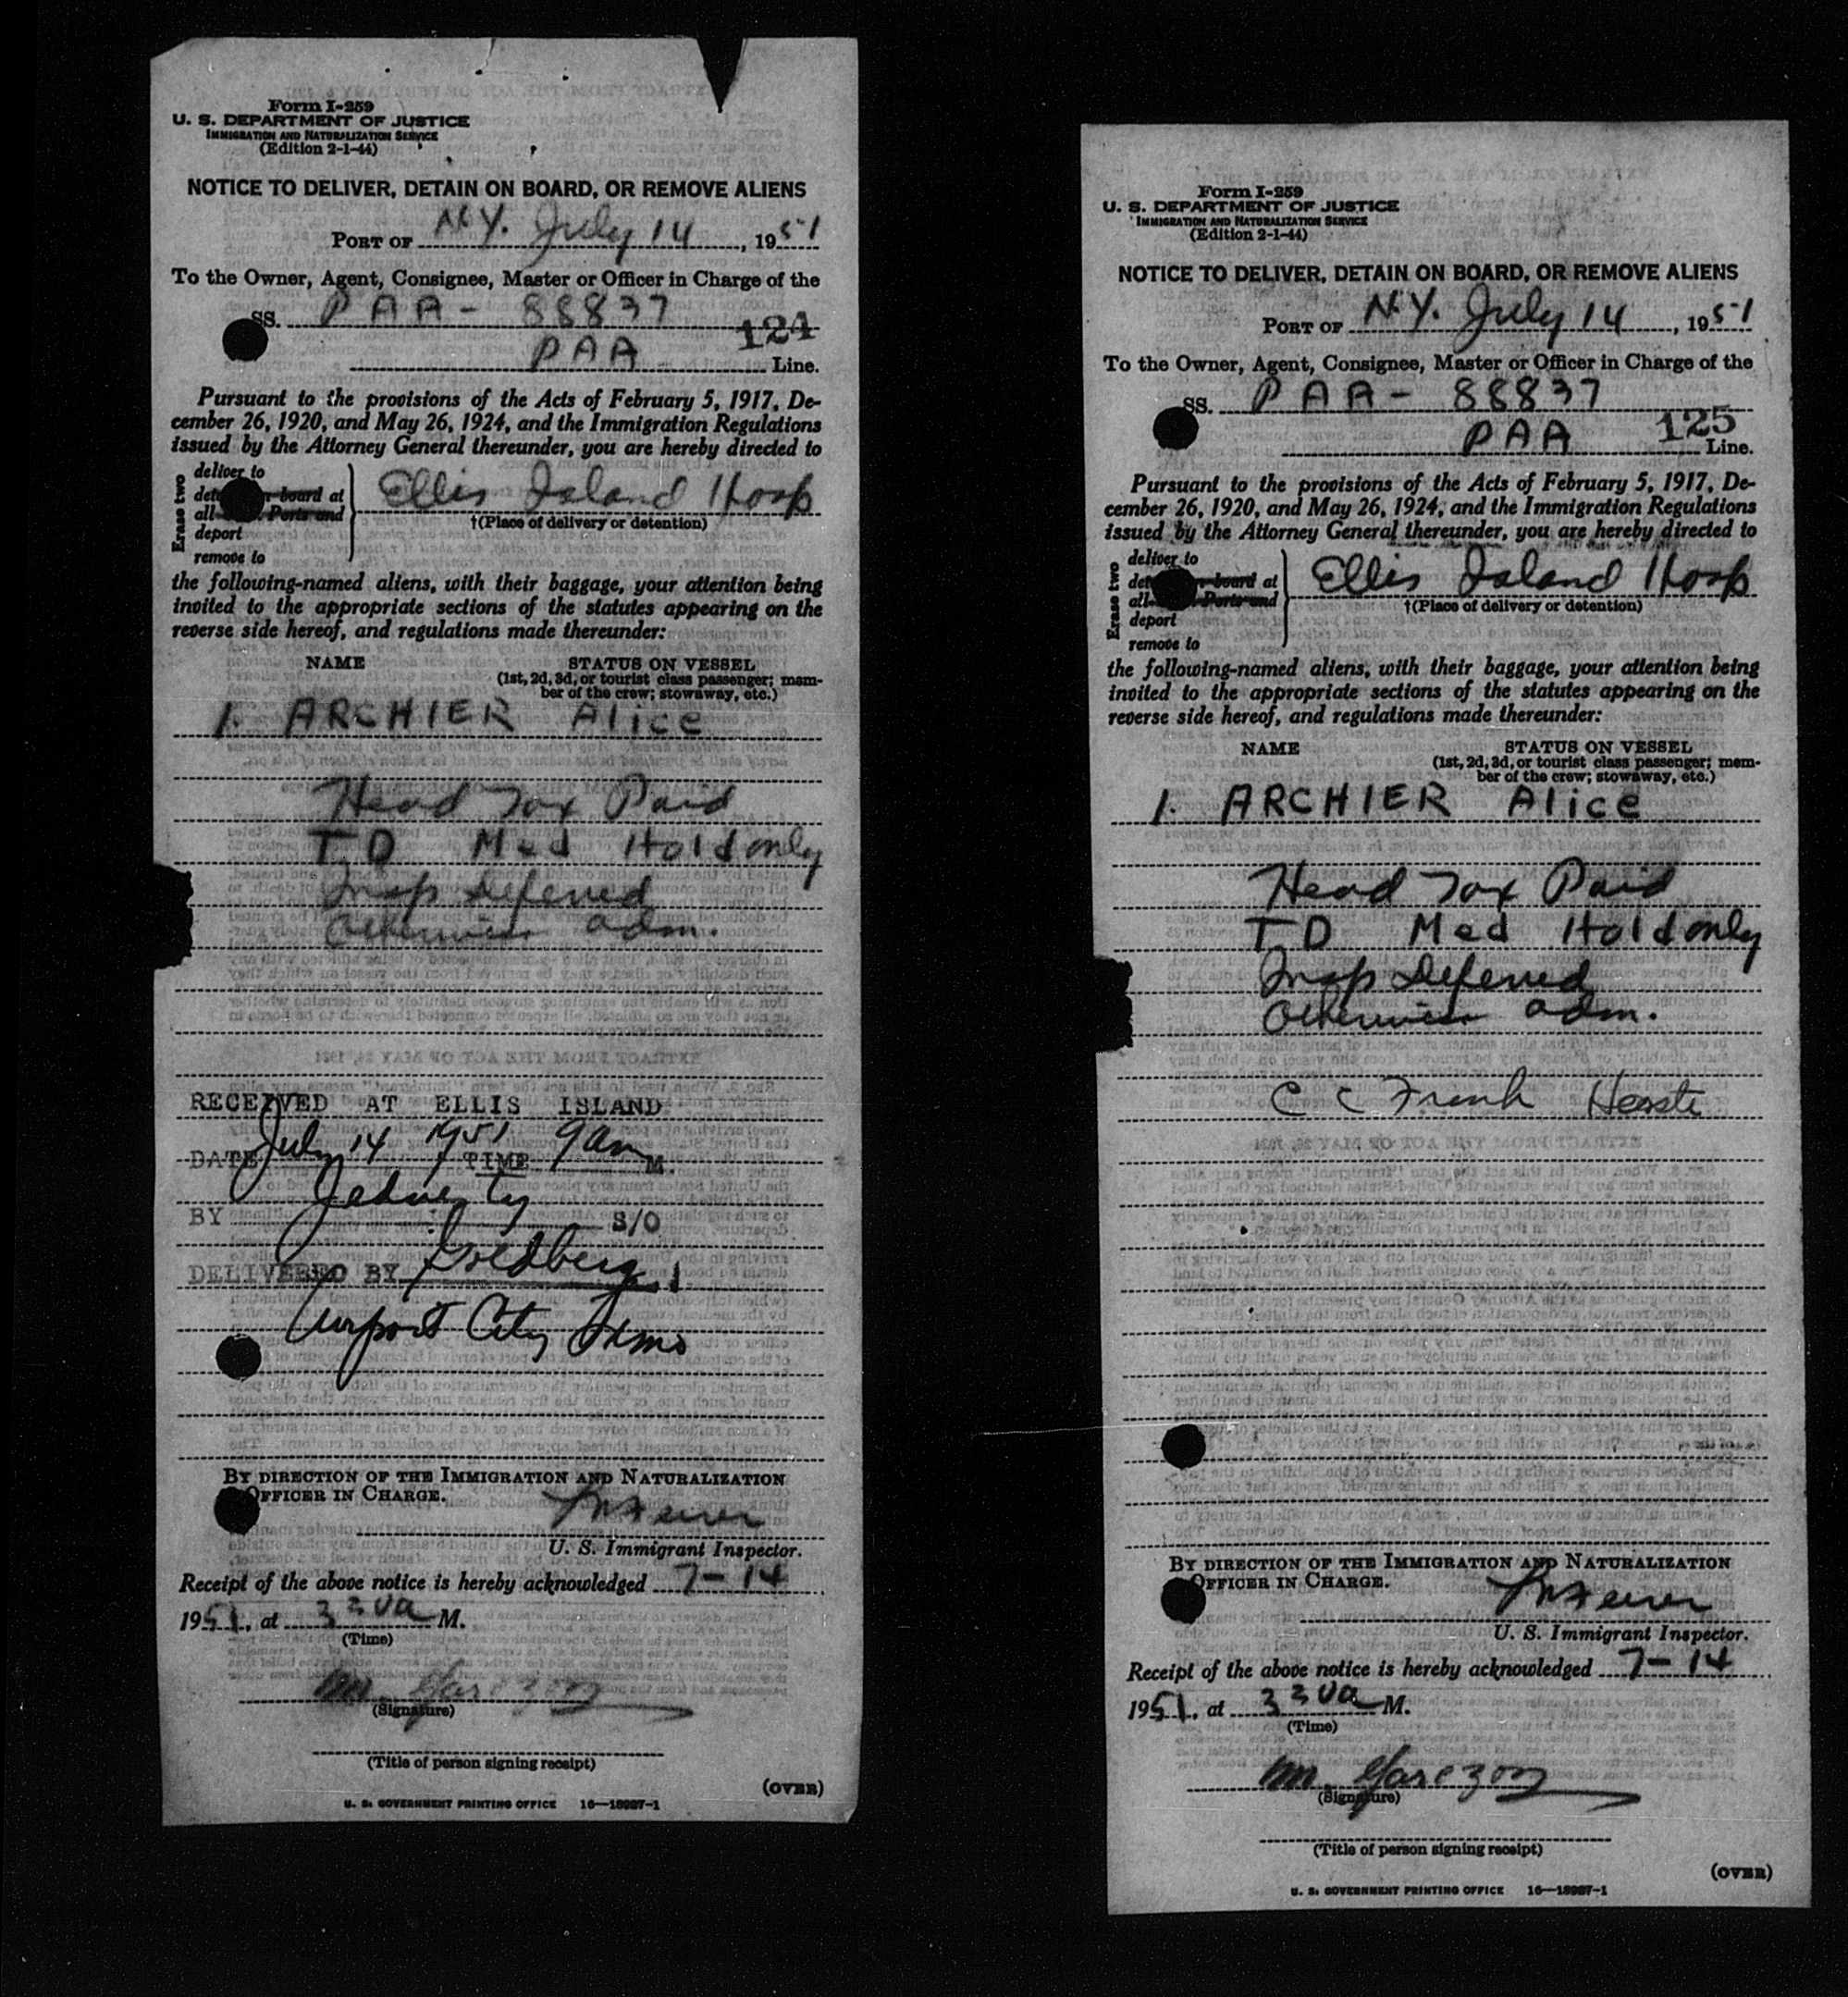 Form I-259
U. S. DEPARTMENT OF JUSTICE
IMMIGRATION AND NATURALIZATION SERVICE
(Edition 2-1-44)
NOTICE TO DELIVER, DETAIN ON BOARD, OR REMOVE ALIENS
PORT OF N.Y. July 14, 1951
To the Owner, Agent, Consignee, Master or Officer in Charge of the
SS. PAA - 88837
124
PAA Line.
Pursuant to the provisions of the Acts of February 5, 1917, De-
cember 26, 1920, and May 26, 1924, and the Immigration Regulations
issued by the Attorney General thereunder, you are hereby directed to
Erase two
deliver to
board at
all Ports and
deport
remove to
Ellis Island Hosp
†(Place of delivery or detention)
the following-named aliens, with their baggage, your attention being
invited to the appropriate sections of the statutes appearing on the
reverse side hereof, and regulations made thereunder:
NAME STATUS ON VESSEL
(1st, 2d, 3d, or tourist class passenger; mem-
ber of the crew; stowaway, etc.)
1. ARCHIER Alice
Head Tax Paid
T.D Med Hold only
Insp Deferred
Otherwise adm.
RECEIVED AT ELLIS ISLAND
DATE July 14 1951 TIME 9am M.
BY S/O
DELIVERED BY Goldberg
Airport City
BY DIRECTION OF THE IMMIGRATION AND NATURALIZATION
OFFICER IN CHARGE.
U. S. Immigrant Inspector.
Receipt of the above notice is hereby acknowledged 7-14
1951, at 330a M.
(Time)
M. Garczon
(Signature)
(Title of person signing receipt)
(OVER)
U. S. GOVERNMENT PRINTING OFFICE 16—18987-1
Form I-259
U. S. DEPARTMENT OF JUSTICE
IMMIGRATION AND NATURALIZATION SERVICE
(Edition 2-1-44)
NOTICE TO DELIVER, DETAIN ON BOARD, OR REMOVE ALIENS
PORT OF N.Y. July 14, 1951
To the Owner, Agent, Consignee, Master or Officer in Charge of the
SS. PAA - 88837
125
PAA Line.
Pursuant to the provisions of the Acts of February 5, 1917, De-
cember 26, 1920, and May 26, 1924, and the Immigration Regulations
issued by the Attorney General thereunder, you are hereby directed to
Erase two
deliver to
board at
all Ports and
deport
remove to
Ellis Island Hosp
†(Place of delivery or detention)
the following-named aliens, with their baggage, your attention being
invited to the appropriate sections of the statutes appearing on the
reverse side hereof, and regulations made thereunder:
NAME STATUS ON VESSEL
(1st, 2d, 3d, or tourist class passenger; mem-
ber of the crew; stowaway, etc.)
1. ARCHIER Alice
Head Tax Paid
T.D Med Hold only
Insp Deferred
Otherwise adm.
C C Frank
BY DIRECTION OF THE IMMIGRATION AND NATURALIZATION
OFFICER IN CHARGE.
U. S. Immigrant Inspector.
Receipt of the above notice is hereby acknowledged 7-14
1951, at 330a M.
(Time)
M. Garczon
(Signature)
(Title of person signing receipt)
(OVER)
U. S. GOVERNMENT PRINTING OFFICE 16—18987-1